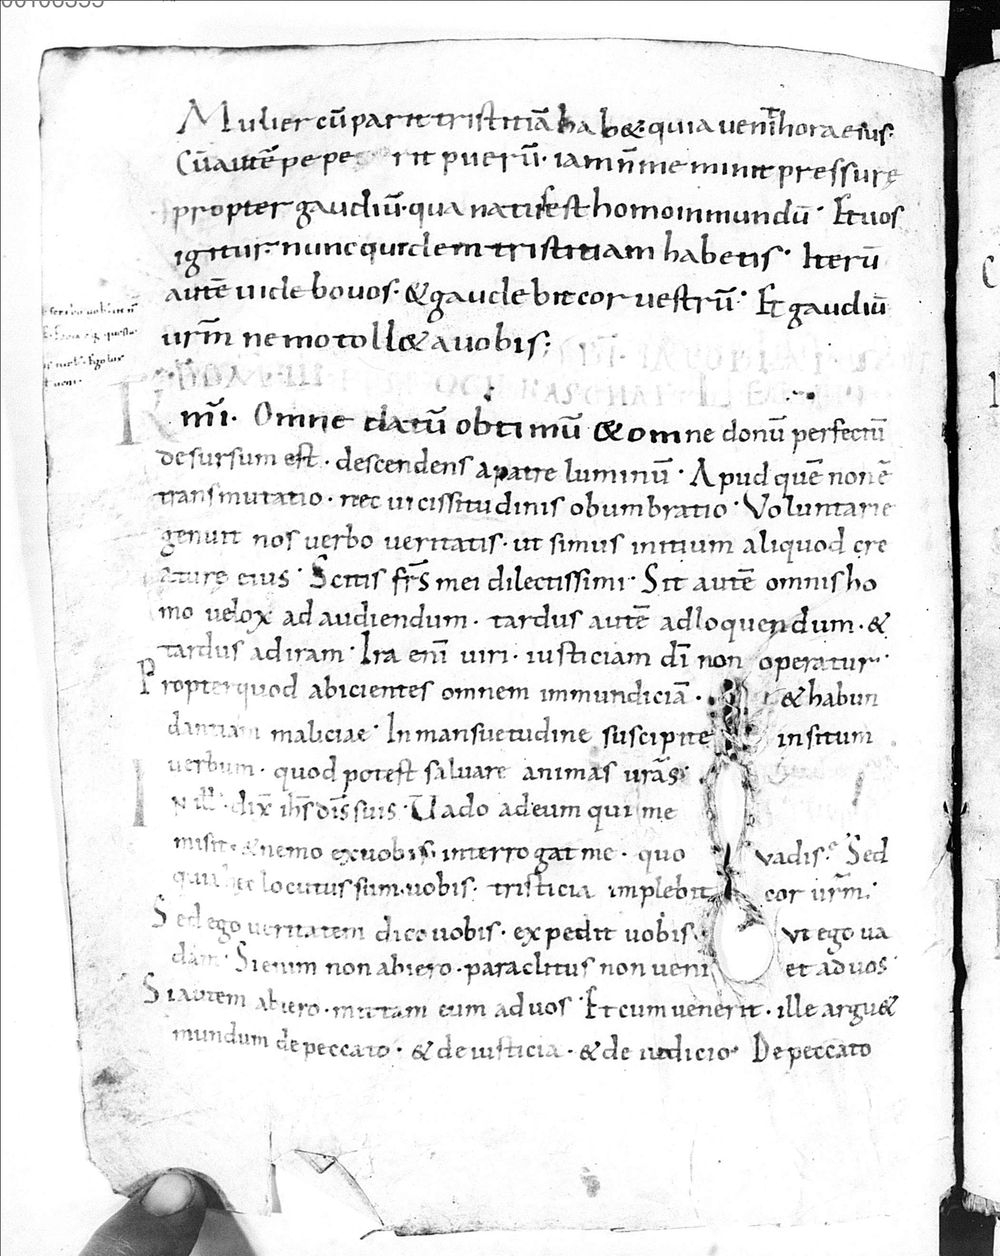 Mulier cū parit tristitiā hab& quia venit hora eius.
Cū autē pepe rit puerū· iam n̄ meminit pressure
propter gaudiū· qua natus est homo in mundū· Et vos
igitur nunc quidem tristitiam habetis· Iterū
autē videbo vos· & gaudebit cor vestrū· Et gaudiū
vrm̄ nemo toll& a vobis;
DOM̄ IIII OCT PASCHAE
Kmi· Omne datū obtimū & omne donū perfectū
desursum est· descendens a patre luminū· Apud quē non ē
transmutatio· nec vicissitudinis obumbratio· Voluntarie
genuit nos verbo veritatis· ut simus initium aliquod cre
ature eius· Scitis frs̄ mei dilectissimi· Sit autē omnis ho
mo velox ad audiendum· tardus autē ad loquendum· &
tardus ad iram· Ira enī viri· iusticiam dī non operatur·
Propter quod abicientes omnem immundiciā· & habun
dantiam maliciae· In mansuetudine suscipite insitum
verbum· quod potest salvare animas vrās·
In ill· dix̄ ihs̄ dis̄ suis· Vado ad eum qui me
misit· & nemo ex vobis interrogat me· quo vadis· Sed
quia hec locutus sum vobis· tristicia implebit cor vrm̄·
Sed ego veritatem dico vobis· expedit vobis· vt ego va
dam· Si enim non abiero· paraclitus non veni et ad vos·
Si autem abiero· mittam eum ad vos· Et cum venerit· ille argu&
mundum de peccato· & de iusticia· & de iudicio· De peccato